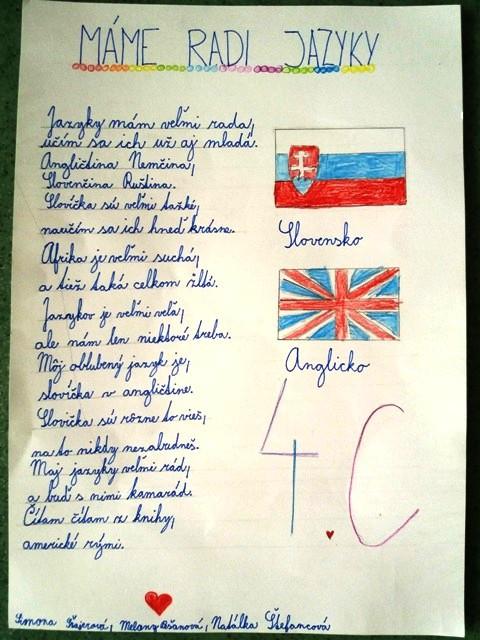 MÁME RADI JAZYKY
Jazyky mám veľmi rada,
učím sa ich už aj mladá.
Angličtina Nemčina,
Slovenčina Ruština.
Slovíčka sú veľmi ťažké,
naučím sa ich hneď krásne.
Afrika je veľmi suchá,
a tiež taká celkom žltá.
Jazykov je veľmi veľa,
ale nám len niektoré treba.
Môj obľubený jazyk je,
slovíčka v angličtine.
Slovíčka sú rôzne to vieš,
na to nikdy nezabudneš.
Maj jazyky veľmi rád,
a buď s nimi kamarád.
Čítam čítam z knihy,
americké rými.
Slovensko
Anglicko
4. C
Simona Majerová, Melany Ošanová, Natálka Štefancová